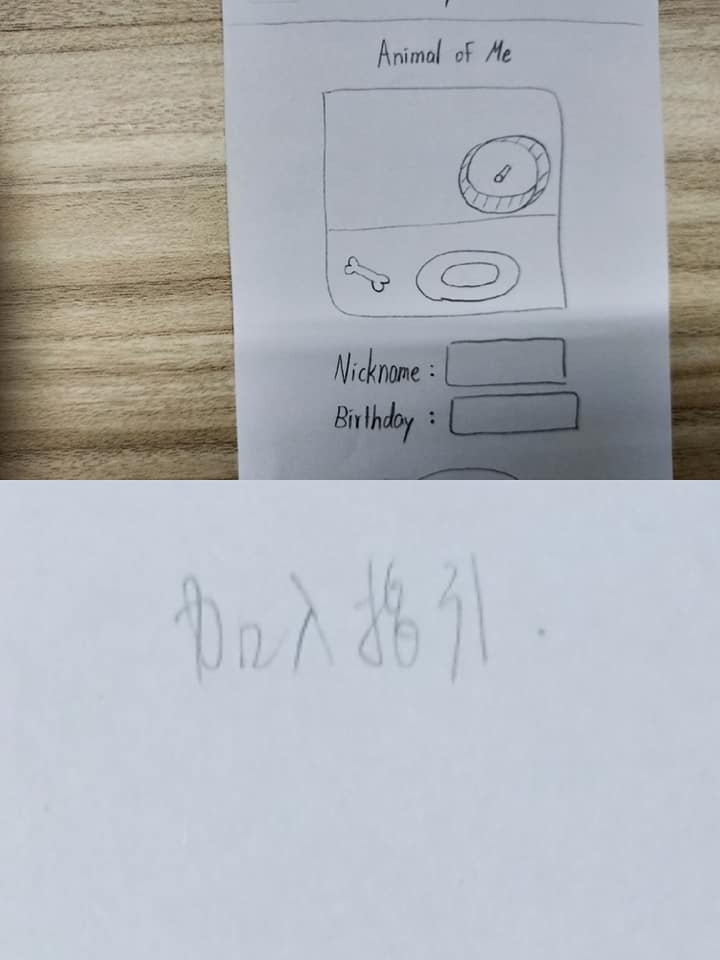 Animal of Me
Nickname :
Birthday :
加入指引.